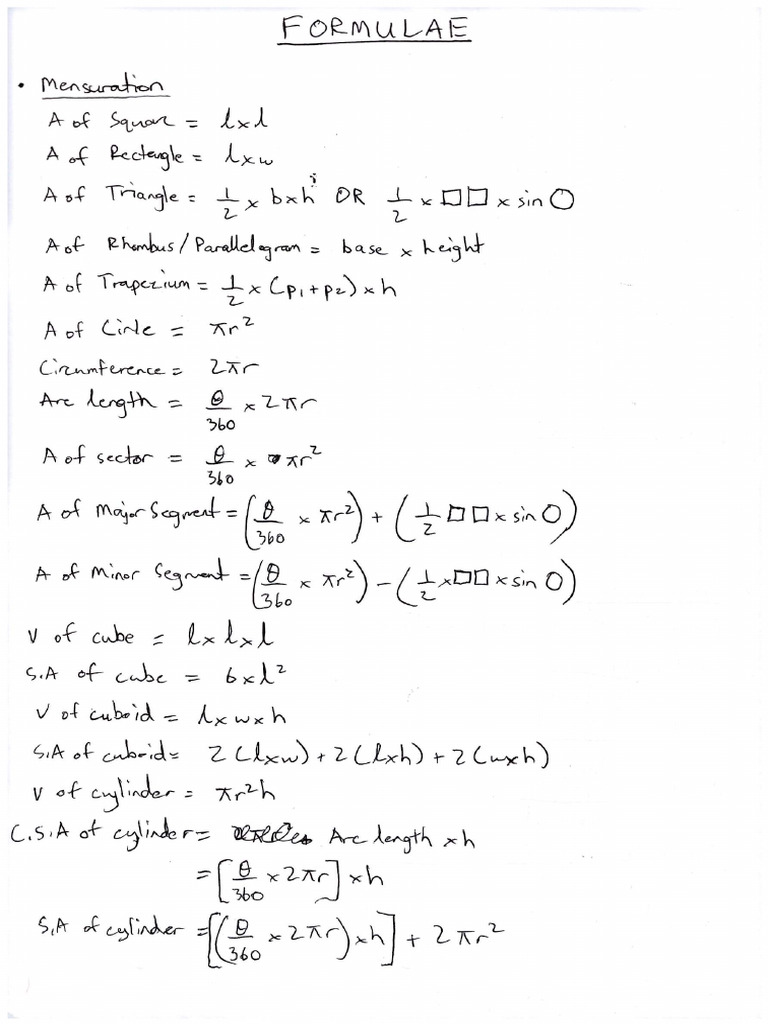 FORMULAE
• Mensuration
A of Square = l×l
A of Rectangle = l×w
A of Triangle = 1/2 × b×h OR 1/2 × □□ × sin O
A of Rhombus/Parallelogram = base × height
A of Trapezium = 1/2 × (p₁+p₂)×h
A of Circle = πr²
Circumference = 2πr
Arc length = θ/360 × 2πr
A of sector = θ/360 × πr²
A of Major Segment = (θ/360 × πr²) + (1/2 □□ × sin O)
A of Minor Segment = (θ/360 × πr²) − (1/2 × □□ × sin O)
V of cube = l×l×l
S.A of cube = 6×l²
V of cuboid = l×w×h
S.A of cuboid = 2(l×w) + 2(l×h) + 2(w×h)
V of cylinder = πr²h
C.S.A of cylinder = Arc length × h
= [θ/360 × 2πr] × h
S.A of cylinder = [(θ/360 × 2πr) × h] + 2πr²